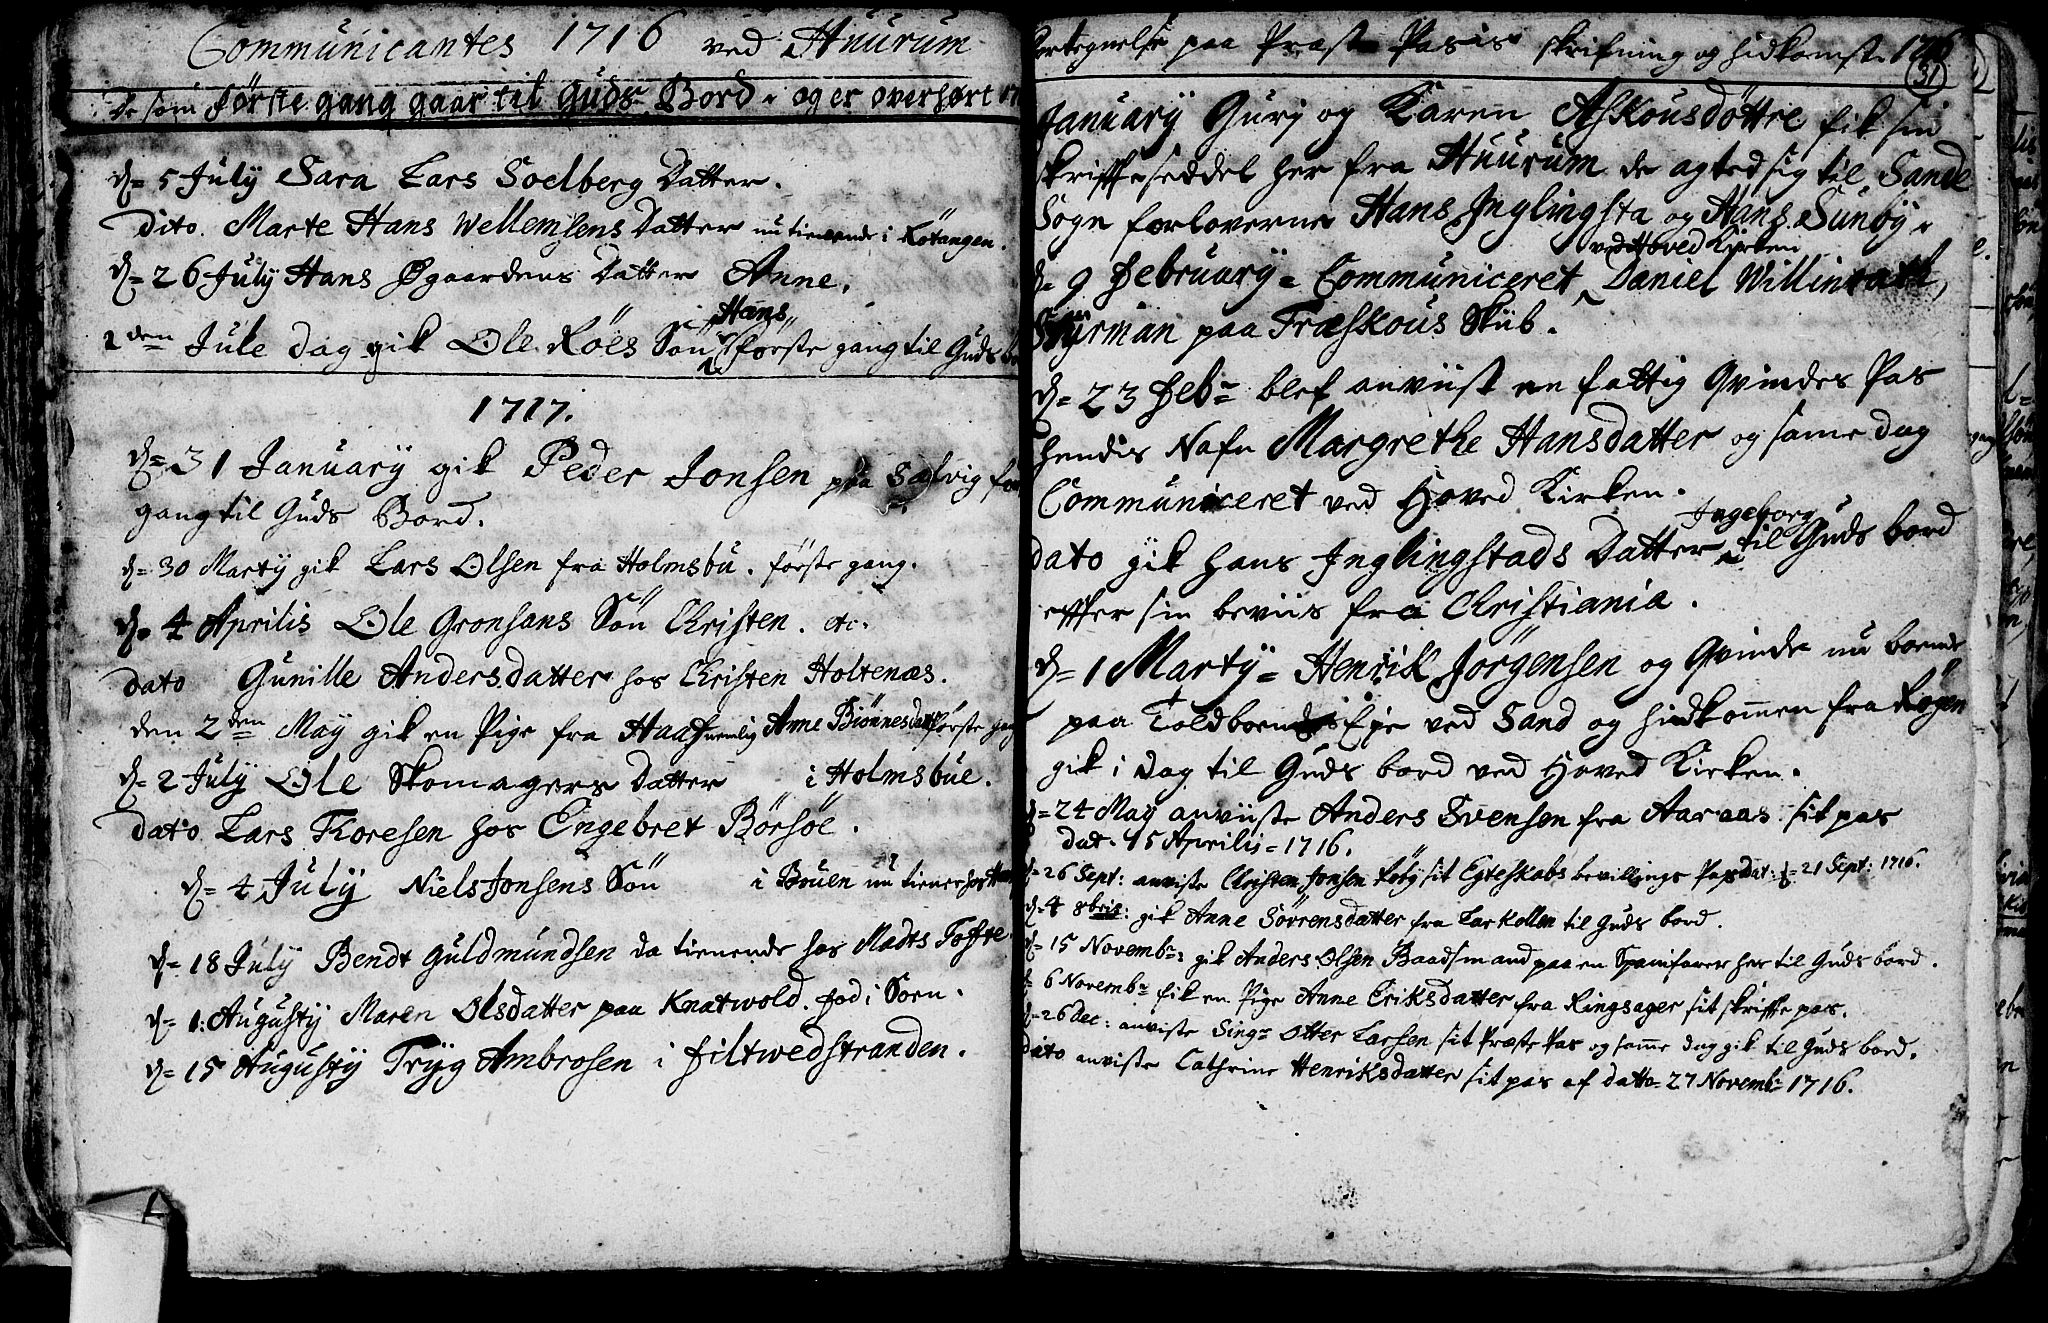 Communicantes 1716 ved Huurum
De som förste gang gaar til Guds Bord og er overhört 17
d= 5 July Sara Lars Soelberg Datter.
Dito. Marte Hans Wellemsens Datter nu tienende i Rötangen.
d= 26 July Hans Øgaardens Datter Anne.
2den Jule dag gik Ole Röes Sön Hans förste gang til Guds bo
1717.
d= 31 January gik Peder Jonsen paa Sætvig för
gang til Guds Bord.
d= 30 Marty gik Lars Olsen fra Holmsbu. förste gang.
d= 4 Aprilis Ole Gronsans Sön Christen. etc.
dato Gunille Andersdatter hos Christen Holtenæs.
den 2den May gik en Pige fra Haaf nemlig Anne Biönnesdatter förste gang
d= 2 July Ole Skomagers Datter i Holmsbue.
dato Lars Toresen hos Engebret Börsöe.
d= 4 July Niels Jonsens Sön i Bruen nu tiener hos Han
d= 18 July Bendt Guldmundsen da tienende hos Madts Tofte.
d= 1: Augusty Maren Olsdatter paa Knatwold. fød i Soen.
d= 15 Augusty Tryg Ambrosen i Filtwedstranden.
Fortegnelse paa Præste Passis skrifning og hidkomst 1716
31
January Guri og Karen Askousdöttre fik sin
skriffteseddel her fra Huurum de agted sig til Sande
Sogn forloverne Hans Inglingsta og Hans Sunby.
d= 9 February= Communiceret ved Hoved Kirken Daniel Willinrath,
Styrman paa Træskous Skib.
d= 23 Feb= blef anviist en fattig Qvindes Pas
hendis Nafn Margrethe Hansdatter og same dag
Communiceret ved Hoved Kirken.
dato gik Hans Inglingstads Datter Ingeborg til Guds bord
effter sin beviis fra Christiania.
d= 1 Marty= Henrik Jörgensen og Qvinde nu boende
paa Toldboens Eje ved Sand og hidkommen fra Röjen
gik i dag til Guds bord ved Hoved Kirken.
d= 24 May anviiste Anders Svensen fra Aaraas sit pas
dat. 15 Aprilis= 1716.
d= 26 Sept: anviste Christen Jonsen Röby sit Egteskabs bevillings Pas dat: d= 21 Sept: 1716.
d= 4 8bris: gik Anne Sörrensdatter fra Larkollen til Guds bord.
d= 15 Novemb=: gik Anders Olsen Baadsmand paa en Spanifarer her til Guds bord.
d= 6 Novemb= fik en Pige Anne Eriksdatter fra Ringsager sit skriffte pas.
d= 26 Dec: anviste Sing= Otter Larsen sit Præste Pas og samme dag gik til Guds bord.
Dato anviste Cathrine Henriksdatter sit pas af datto= 27 Novemb= 1716.